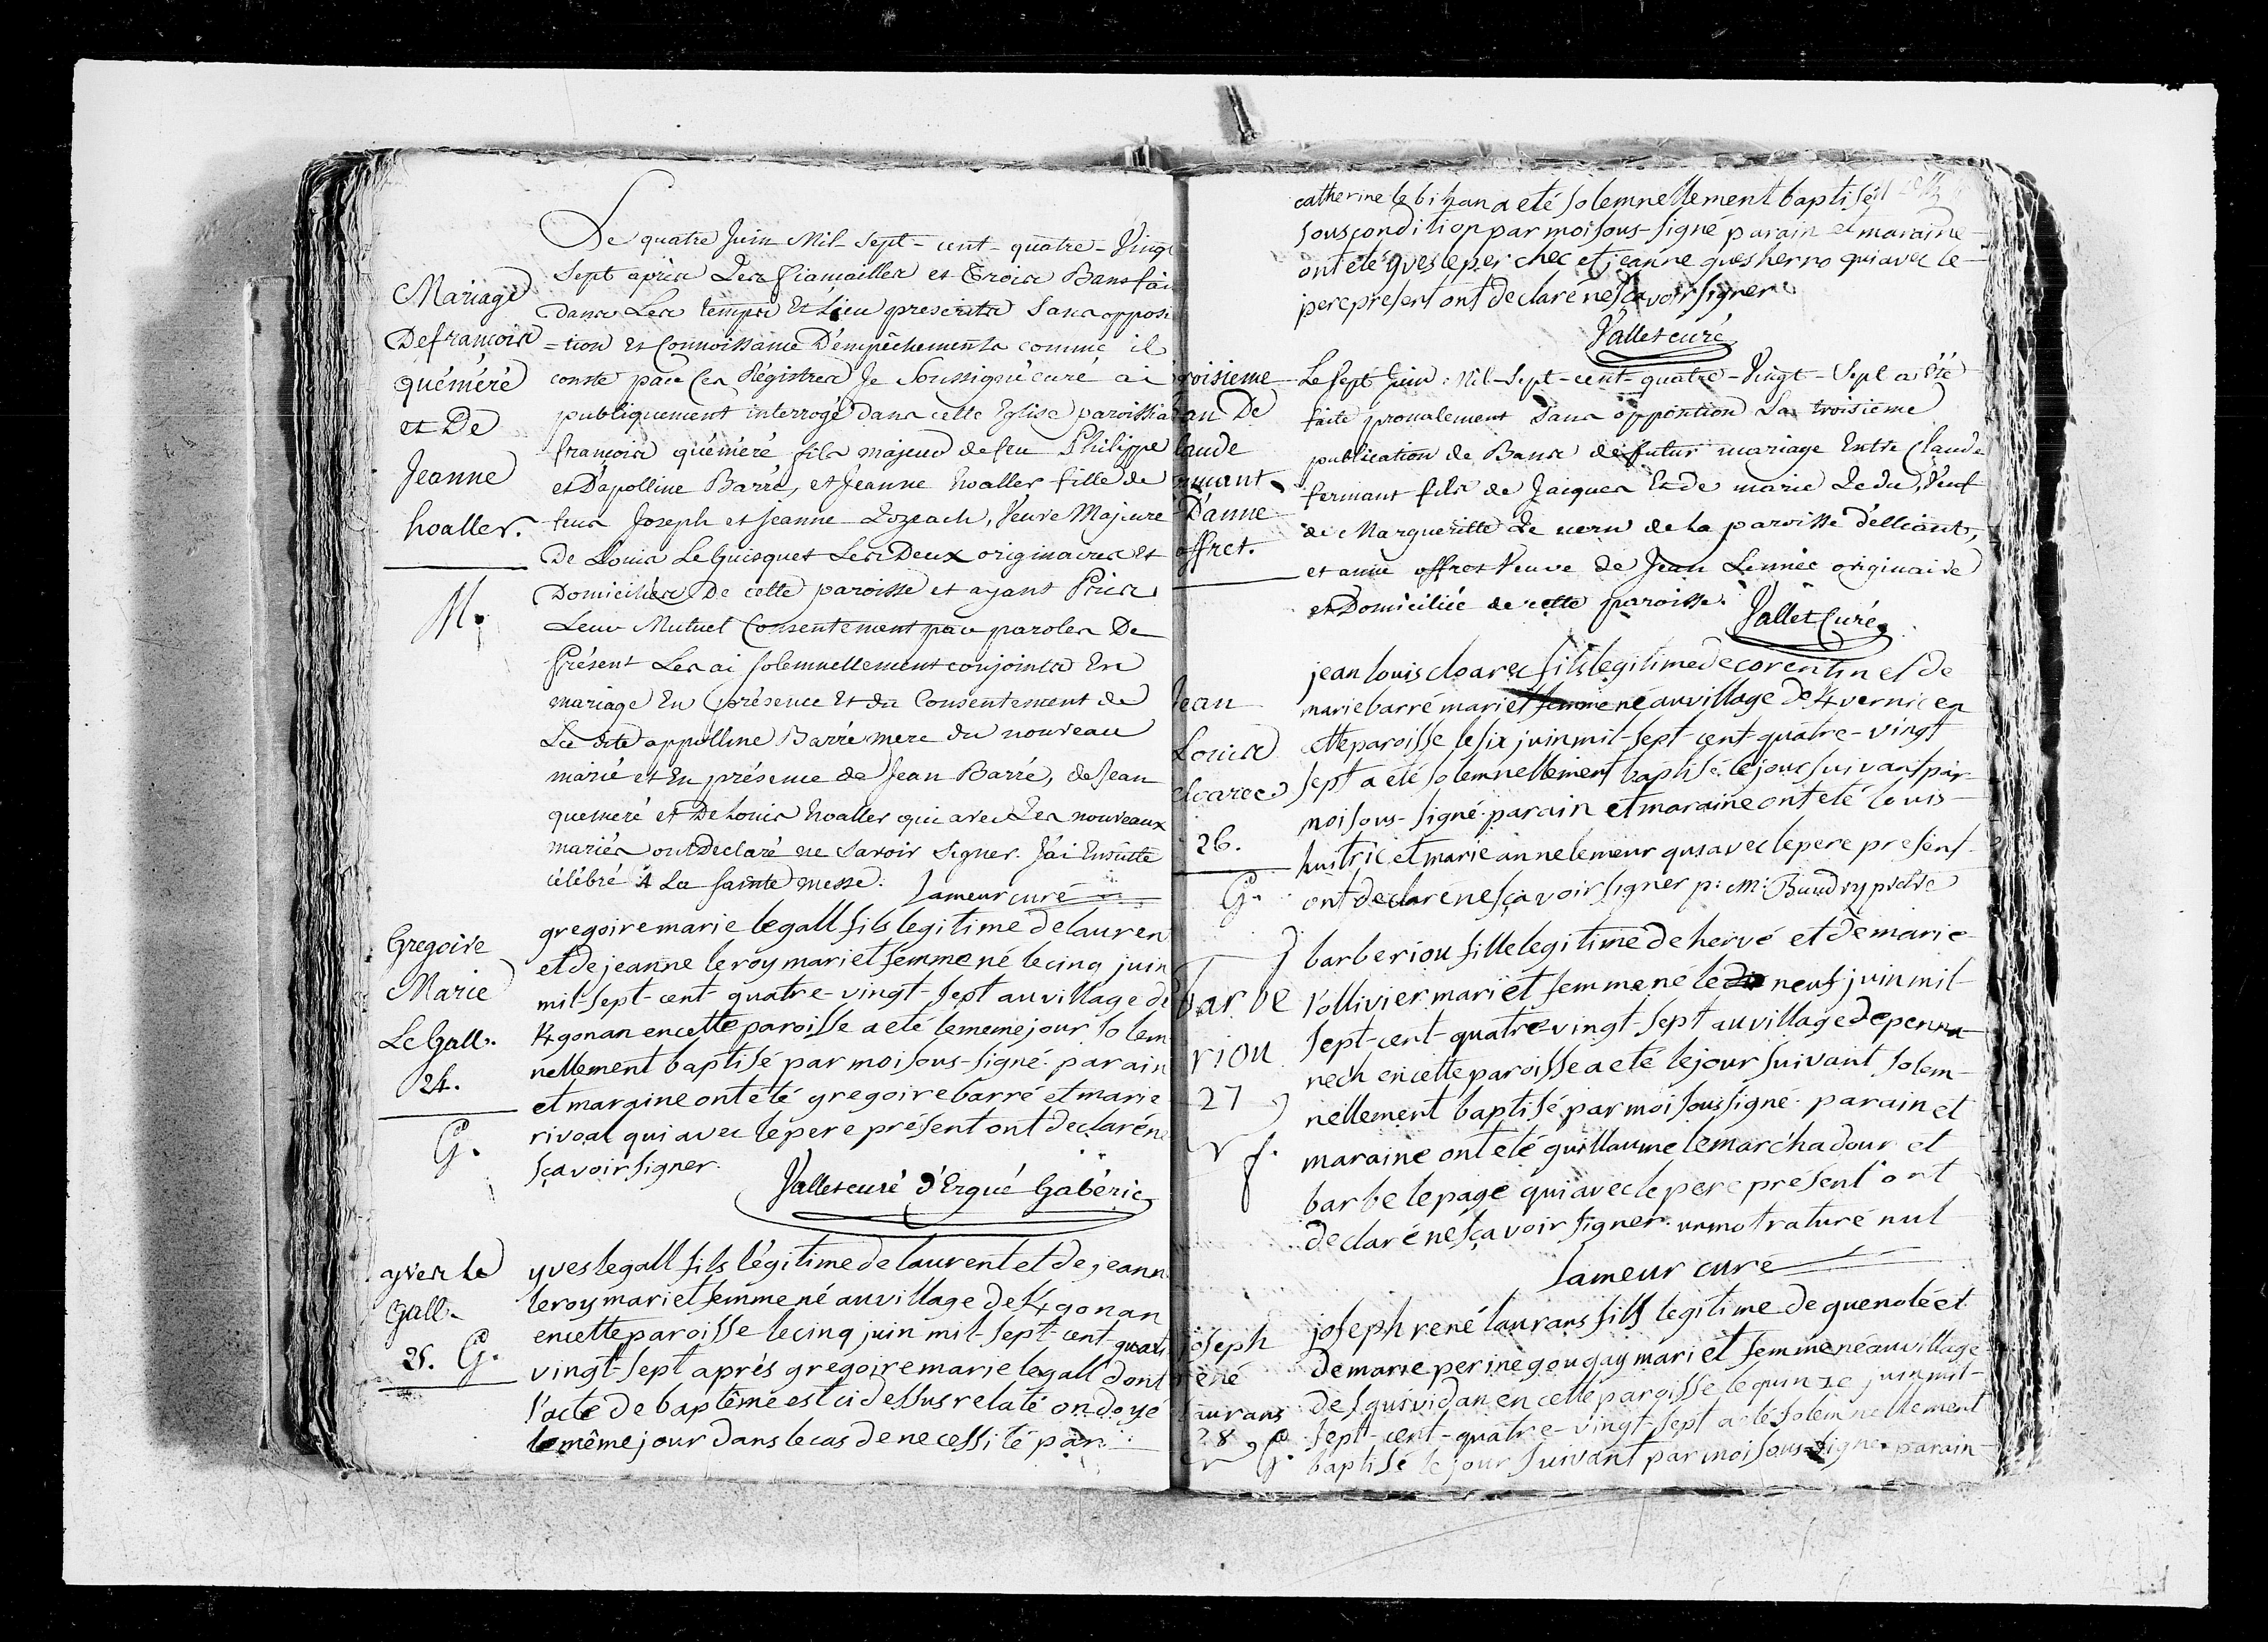 Mariage
De françois
quéméré
et De
Jeanne
hoaller.
M.
Le quatre Juin Mil-Sept-cent-quatre-Vingt
Sept après Les fiancailles et Trois Bans fai
dans Les temps Et Lieu prescrits Sans opposi
=tion Et Connoissance D'empêchements comme il
conste par Ces Régistres Je Soussigné curé ai
publiquement interrogé dans cette Eglise paroissia
françois quéméré fils majeur de feu Philippe
et D'apolline Barré, et Jeanne hoaller fille de
feus Joseph et Jeanne Lozeach, Veuve Majeure
De Louis Le Guisquet Les Deux originaires Et
Domiciliés De cette paroisse et ayant Pris
Leur Mutuel Consentement par paroles De
Présent Les ai solemnellement conjoints En
mariage En présence Et du Consentement de
La dite appolline Barré mere du nouveau
marié et En présence de Jean Barré, de Jean
quemeré et De Louis hoaller qui avec Les nouveaux
mariés ont Declaré ne Savoir Signer. J'ai Ensuitte
célébré La Sainte messe. Lameur curé
Gregoire
Marie
Le Gall.
24.
G.
gregoire marie le gall fils legitime de lauren
et de jeanne le roy mari et femme né le cinq juin
mil-sept-cent-quatre-vingt-sept au village de
K/gonan en cette paroisse a eté le meme jour solem
nellement baptisé par moi sous-signé. parain
et maraine ont eté gregoire barré et marie
rivoal qui avec le pere présent ont declaré ne
sçavoir signer.
Vallet curé d'Ergué Gabéric
yves Le
Gall.
25. G.
yves le gall fils légitime de laurent et de jeann
le roy mari et femme né au village de K/gonan
en cette paroisse le cinq juin mil-sept-cent-quatr
vingt-sept aprés gregoire marie le gall dont
l'acte de baptême est ci dessus relaté ondoyé
le même jour dans le cas de necessité par
catherine le bihan a eté solemnellement baptisé
sous condition par moi sous-signé parain et maraine
ont eté yves le per chec et jeanne quesherno qui avec le
pere present ont declaré ne sçavoir signer
Vallet curé
roisieme
an De
laude
rmant
D'anne
offret.
Le sept Juin: Mil-Sept-cent-quatre-Vingt-Sept a Eté
faite pronalement Sans opposition La troisieme
publication de Bans de futur mariage Entre Claude
fermant fils de Jacques Et de marie Le du, Veuf
de Margueritte Le vern de la paroisse d'elliant,
et anne offret Veuve de Jean Lennéc originaire
et Domiciliée de cette paroisse. Vallet Curé
Jean
Louis
cloarec
26.
G.
jean louis cloarec fils legitime de corentin et de
marie barré mari et femme né au village de K/vernic en
cette paroisse le six juin mil-sept-cent-quatre-vingt
sept a eté solemnellement baptisé le jour suivant par
moi sous-signé. parain et maraine ont eté louis
huitric et marie anne le meur qui avec le pere présent
ont declaré ne sçavoir signer p: M: Baudry pretre
barbe
riou
27
f.
barbe riou fille legitime de hervé et de marie
l'ollivier mari et femme né le neuf juin mil
sept-cent-quatre-vingt-sept au village de penna
nech en cette paroisse a eté le jour suivant solem
nellement baptisé par moi sous signé. parain et
maraine ont eté guillaume le marc'hadour et
barbe le page qui avec le pere présent ont
declaré ne sçavoir signer. un mot raturé nul
Lameur curé
joseph
rené
laurans
28 G.
joseph rené laurans fils legitime de guenolé et
de marie perine gougay mari et femme né au village
de squividan en cette paroisse le quinze juin mil-
sept-cent-quatre-vingt-sept a eté solemnellement
baptisé le jour suivant par moi sous-signé parain